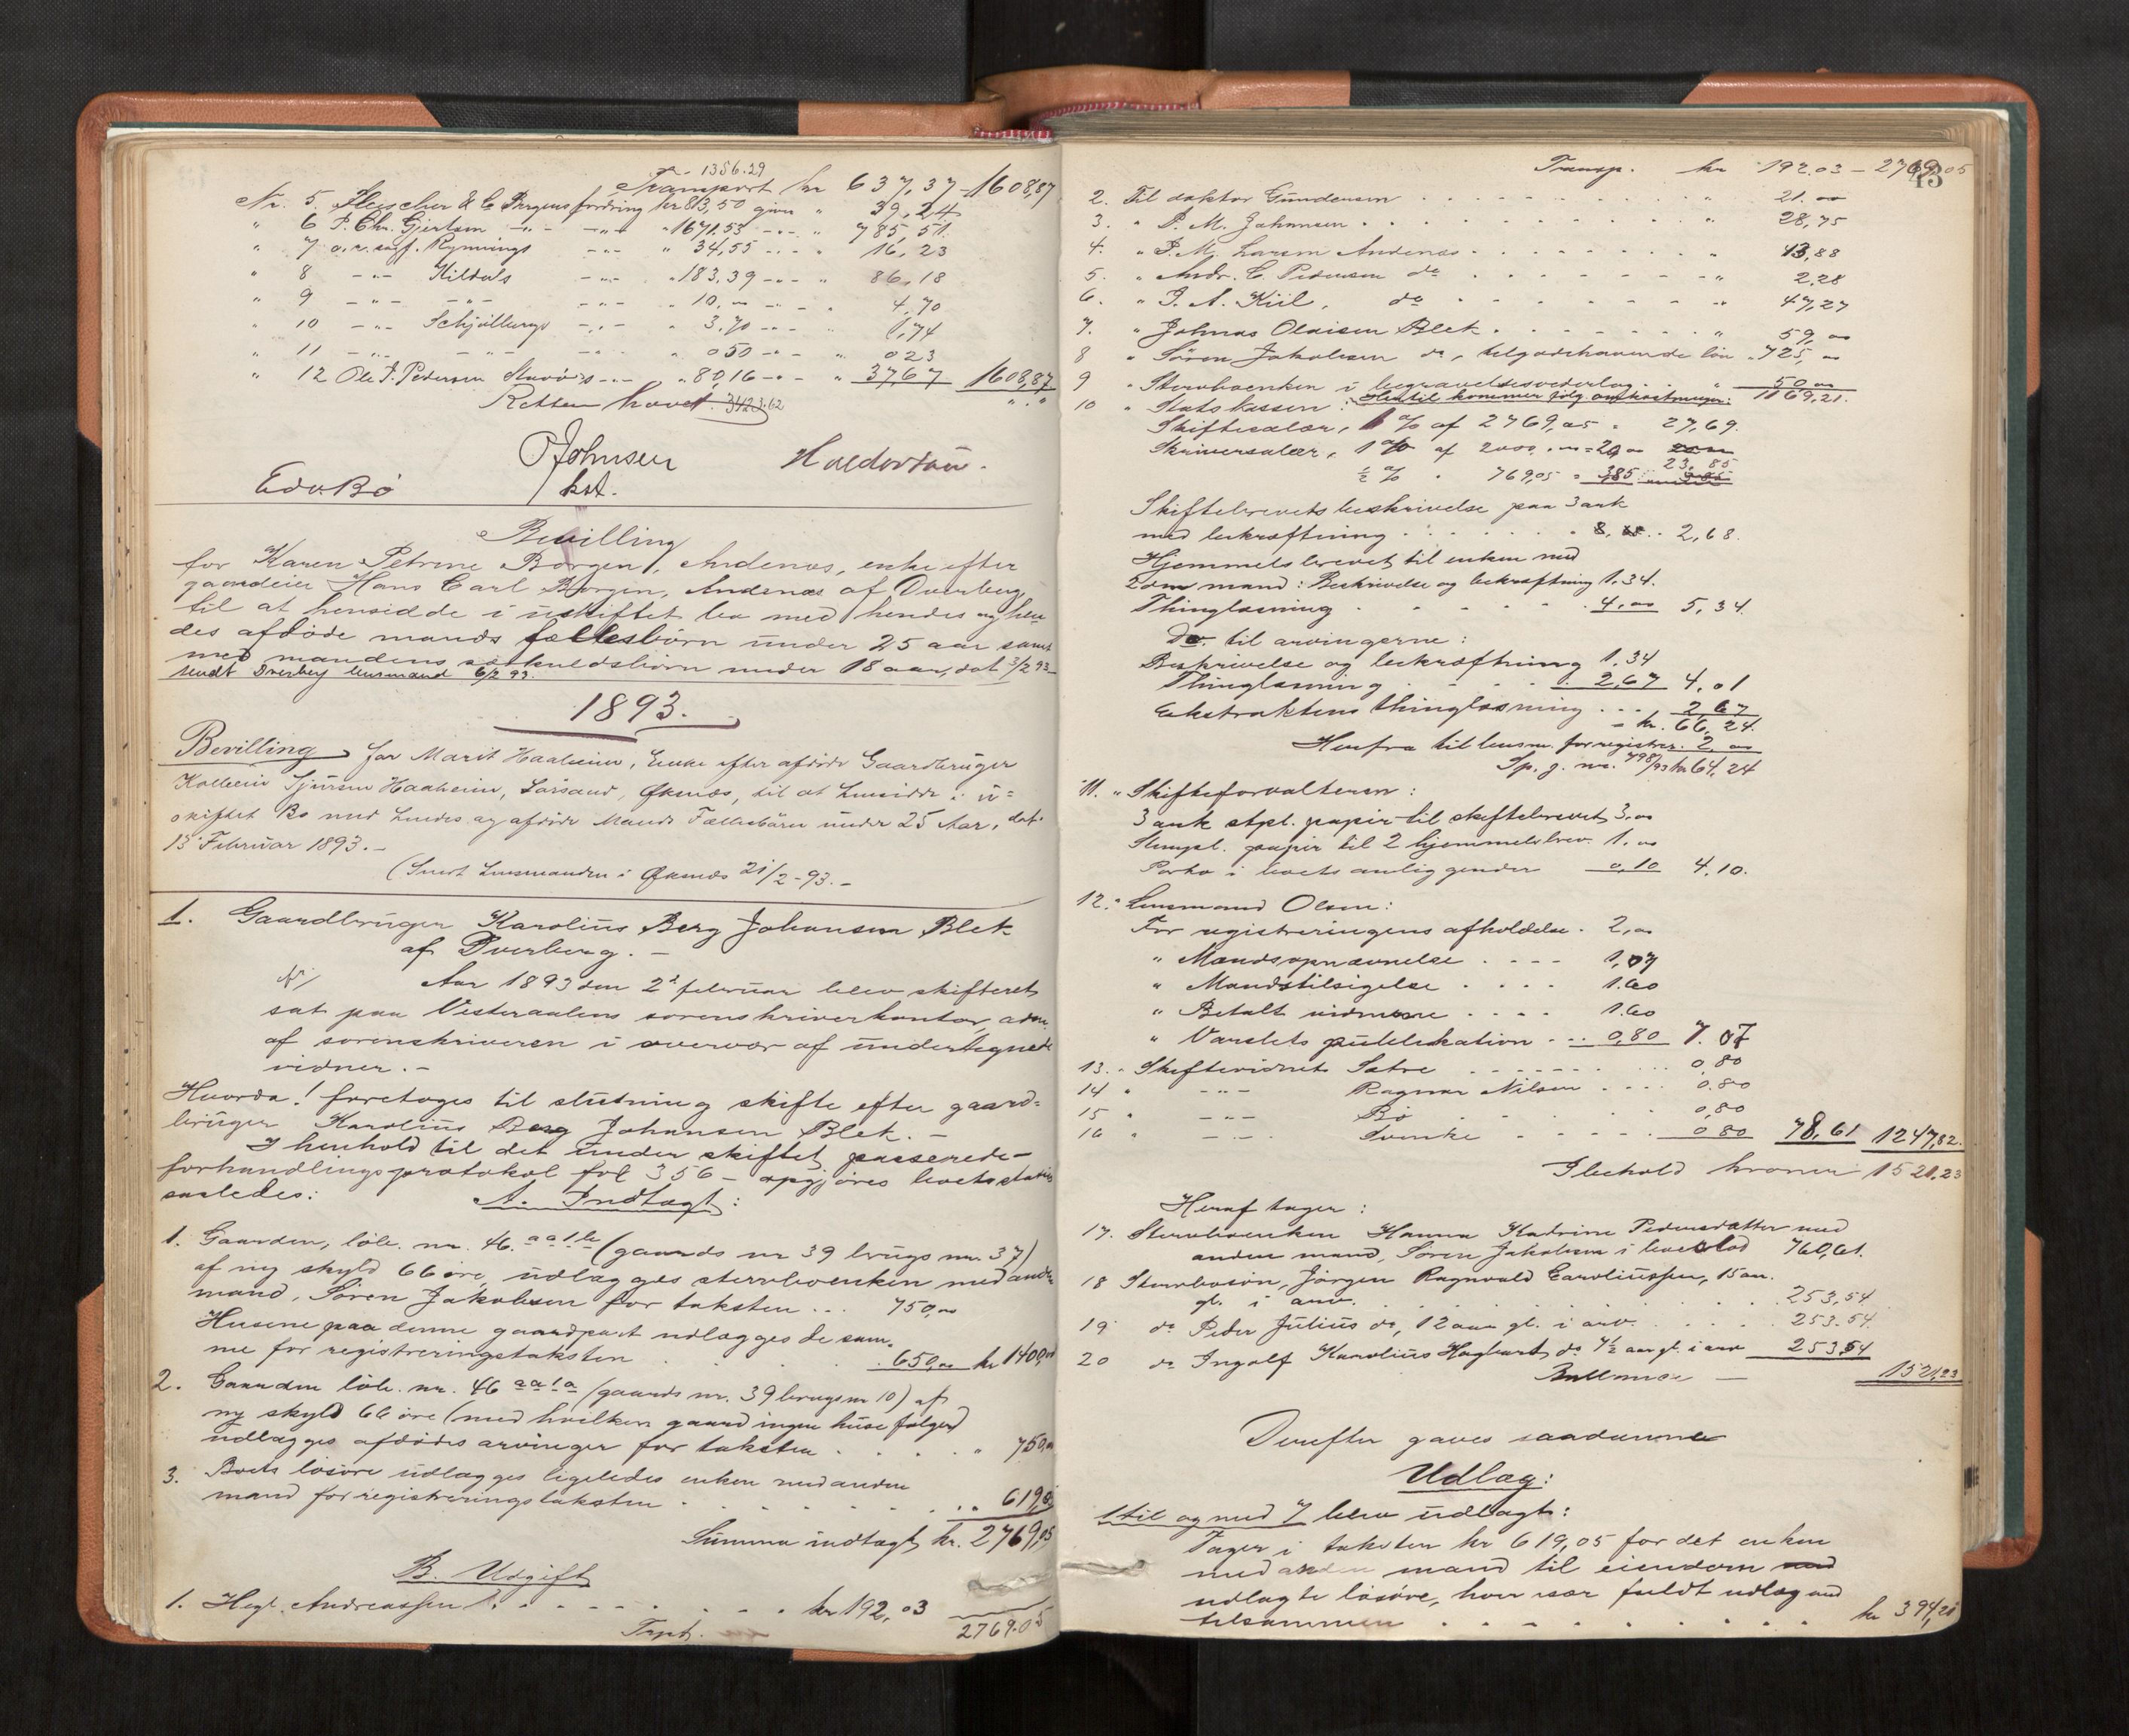 1356.29
Transport kr 637,37 - 1608,87
Nr. 5. Fleischer & C Bergens fordring kr 83,50 given " 39,24
" 6 P. Chr. Gjertsen -"- -"- " 1671.53 -"- " 785,51.
" 7 o.r. sagf. Rynnings -"- " 34,55 -"- " 16,23
" 8 -"- Kildals -"- " 183,39 -"- " 86,18
" 9 -"- -"- -"- " 10,00 -"- " 4,70
" 10 -"- Schjølbergs -"- " 3,70 -"- " 1,74
" 11 -"- -"- -"- " 0 50 -"- " 0 23
" 12 Ole P. Pedersen -"- " 80,16 -"- " 37,67 1608,87
Retten hævet. 3423.62 " "
O Johnsen Haldorsen.
Edv Bö kst.
Bevilling
for Karen Petrine Borgen, Andenæs, enke efter
gaardeier Hans Carl Borgen, Andenæs af Dverberg,
til at hensidde i uskiftet bo med hendes og hen
des afdøde mands fællesbörn under 25 aar samt
med mandens særkuldsbörn under 18 aar, dat 3/2 93.
sendt Dverberg lensmand 6/2 93.
1893.
Bevilling for Marit Haaheim, Enke efter afdøde Gaardbruger
Kolbein Sjursen Haaheim, Øksnæs, til at hensidde i u=
skiftet Bo med hendes og afdøde Mands Fællesbörn under 25 Aar, dat.
13 Februar 1893. -
(Sendt Lensmanden i Øksnæs 21/2-93. -
1. Gaardbruger Karolius Berg Johansen Blek
af Dverberg. -
Aar 1893 den 2d februar blev skifteret
sat paa Vesteraalens sorenskriverkontor, adm.
af sorenskriveren i overvær af undertegnede
vidner. -
Hvorda! foretoges til slutning skifte efter gaard=
bruger Karolius Berg Johansen Blek. -
I henhold til det under skiftet passerede -
forhandlingsprotokol fol 356 - opgjöres boets status
saaledes: A. Indtægt:
1. Gaarden, löb. nr. 46. aa 1 b (gaards nr 39 brugs nr. 37)
af ny skyld 66 öre, udlægges stervboenken med anden
mand, Sören Jakobsen for taksten ... 750,00
Husene paa denne gaardpart udlægges de sam-
me for registreringstaksten . . . 650,00 kr 1400,00
2. Gaarden löb. nr. 46 aa 1 a (gaards nr. 39 brugs nr 10) af
ny skyld 66 öre (med hvilken gaard ingen huse fölger)
udlægges afdödes arvinger for taksten . . . . " 750,00
3. Boets lösöre udlægges ligeledes enken med anden
mand for registreringstaksten . . . . . . . . " 619,05
Summa indtægt kr. 2769,05
B. Udgift
1. Hegl. Andreassen . . . . . . . . kr 192,03
Trpt. 2769.05
43
Transp. kr 192.03 - 2769,05
2. Til doktor Gundersen . . . . . . . . " 21.00
3. " P. M. Johansen . . . . . . . . " 28,75
4. " P. M. Larsen Andenæs . . . . . . . " 43,88
5. " Andr. C. Pedersen do . . . . . . . " 2,28
6. " J. A. Kiil, do . . . . . . . " 47,27
7. " Johnas Olaisen Blek . . . . . . . " 59,00
8 " Sören Jakobsen do, tilgodehavende lön " 725,00
9 " Stervboenken i begravelsesvederlag . . " 50,00
10 " Statskassen: Hertil kommer fölg. omkostninger: 1169,21.
Skiftesalær, 1 % af 2769,05 . 27,69.
Skriversalær, 1 % af 2000,00 = 20,00
½ % . 769,05 = 3,85 23,85
Skiftebrevets beskrivelse paa 3 ark
med bekræftning . . . . . . 2,68.
Hjemmelsbrevet til enken med
2den mand: Beskrivelse og bekræftning 1.34.
Thinglæsning . . . . . . 4,00 5,34.
Do. til arvingerne:
Beskrivelse og bekræftning 1.34
Thinglæsning . . . . 2,67 4.01
Ekstraktens thinglæsning . . . 2 67
- kr. 66,24.
Herfra til lensm. for registrer. 2,00
Sp. j. nr. 798/93 kr 64,24
11. " Skifteforvalteren:
3 ark stpl. papir til skiftebrevet 3,00
Stempl. papir til 2 hjemmelsbrev. 1,00
Porto i boets anliggender 0,10 4.10.
12. " Lensmand Olsen:
For registreringens afholdelse . 2,00
" Mandsopnævnelse . . . . 1,07
" Mandstilsigelse . . . . 1.60
" Betalt vidnerne . . . . 1.60
" Varslets publikation . ... 0,80 7.07
13. " Skiftevidnet Sætre . . . . . . . 0,80
14 " -"- Ragnar Nilsen . . . . 0.80
15 " -"- Bö . . . . . . 0,80
16 " -"- Svenke . . . . . 0 80 78,61 1247,82.
I behold kroner 1521.23
Heraf tager:
17. Stervboenken Hanna Katrine Pedersdatter med
anden mand, Sören Jakobsen i boeslod 760,61.
18 Stervbosön, Jörgen Ragnvald Caroliussen, 15 aar.
gl. i arv. . . . . . . . . 253,54
19 do Peder Julius do, 12 aar gl. i arv. . . . . 253.54.
20 do Ingolf Karolius Hagbart do 7½ aar gl. i arv 253,54
Ballance - 1521,23
Derefter gaves saadanne
Udlæg:
1 til og med 7 blev udlagt:
Tager i taksten kr 619,05 for det enken
med anden mand til eiendom
udlagte lösöre, hver især fuldt udlæg med
tilsammen . . . . . . . . kr 394,21